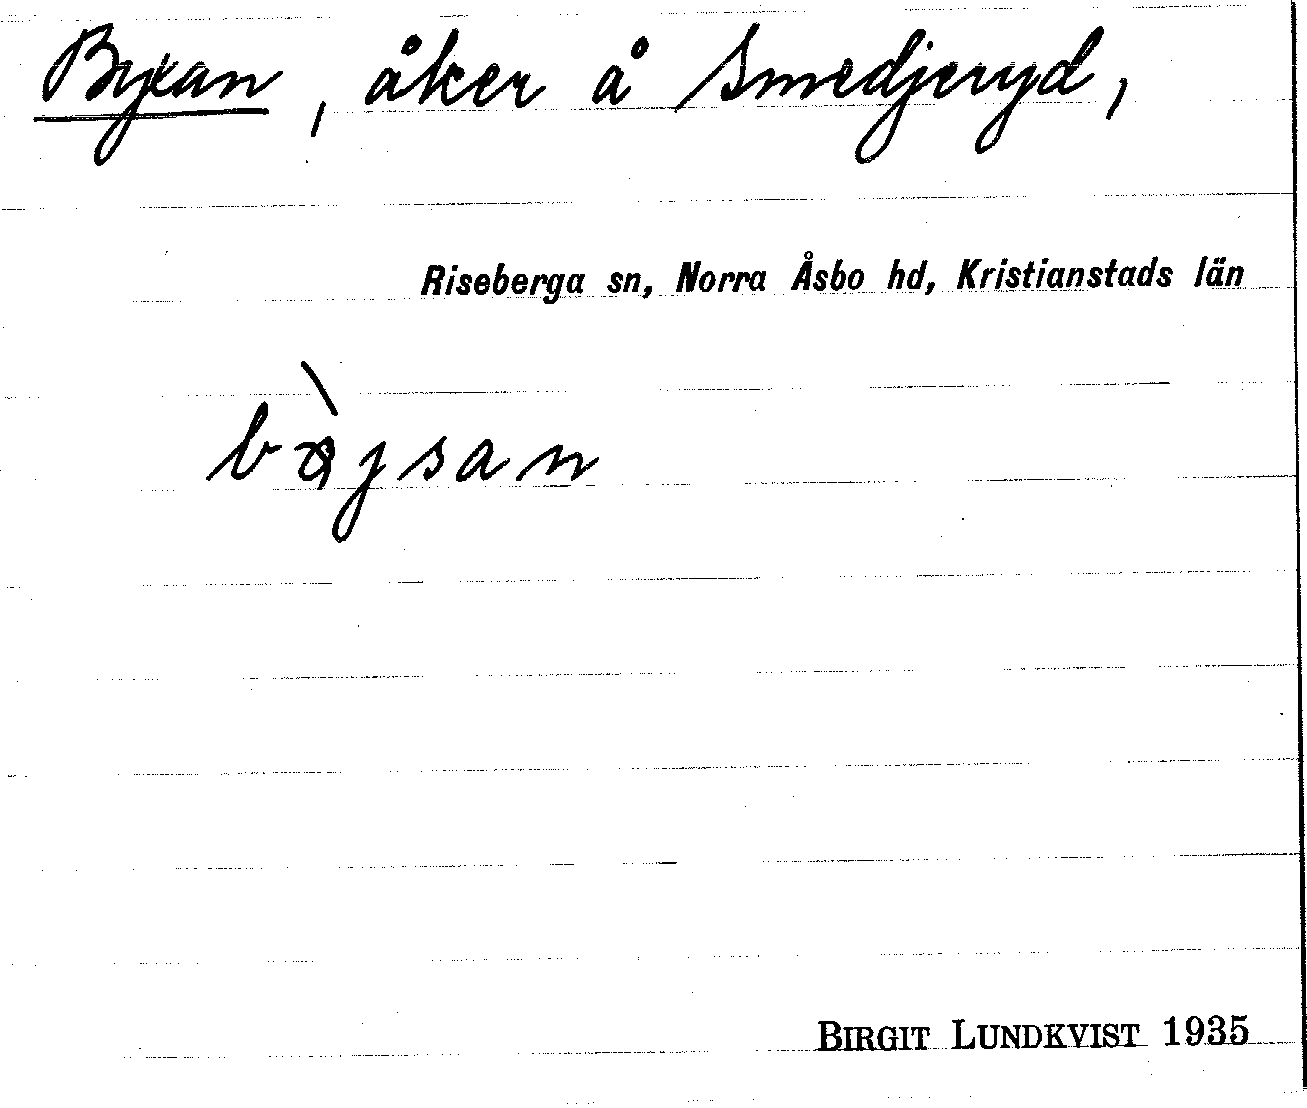 Byxan, åker å Smedjeryd,
Riseberga sn, Norra Åsbo hd, Kristianstads län
BIRGIT LUNDKVIST 1935